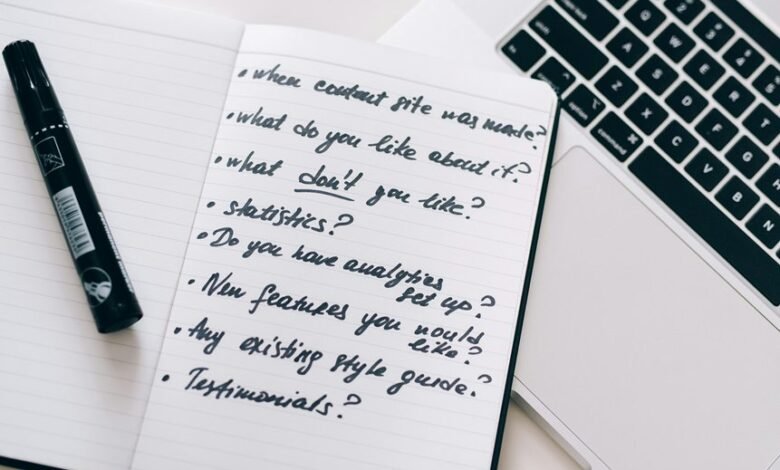 • when content site was made?
• what do you like about it?
• what don't you like?
• statistics?
• Do you have analytics
set up?
• New features you would
like?
• Any existing style guide?
• Testimonials?
Q W E R T
A S D F G
Z X C V B N
command